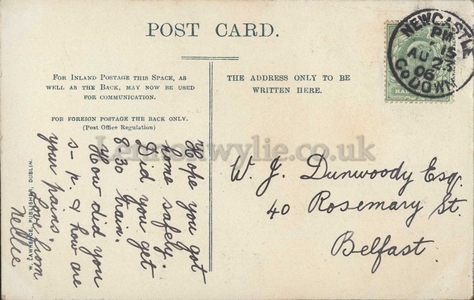 POST CARD.
FOR INLAND POSTAGE THIS SPACE, AS
WELL AS THE BACK, MAY NOW BE USED
FOR COMMUNICATION.
FOR FOREIGN POSTAGE THE BACK ONLY.
(Post Office Regulation)
THE ADDRESS ONLY TO BE
WRITTEN HERE.
NEWCASTLE
PM
15
AU 23
06
CO. DOWN
Hope you got
home safely.
Did you get
8-30 train.
How did you
s-p. & how are
your pains.
from
Nellie
W. J. Dunwoody Esq.
40 Rosemary St.
Belfast.
W. LAWRENCE, PUBLISHER, DUBLIN.
wylie.co.uk